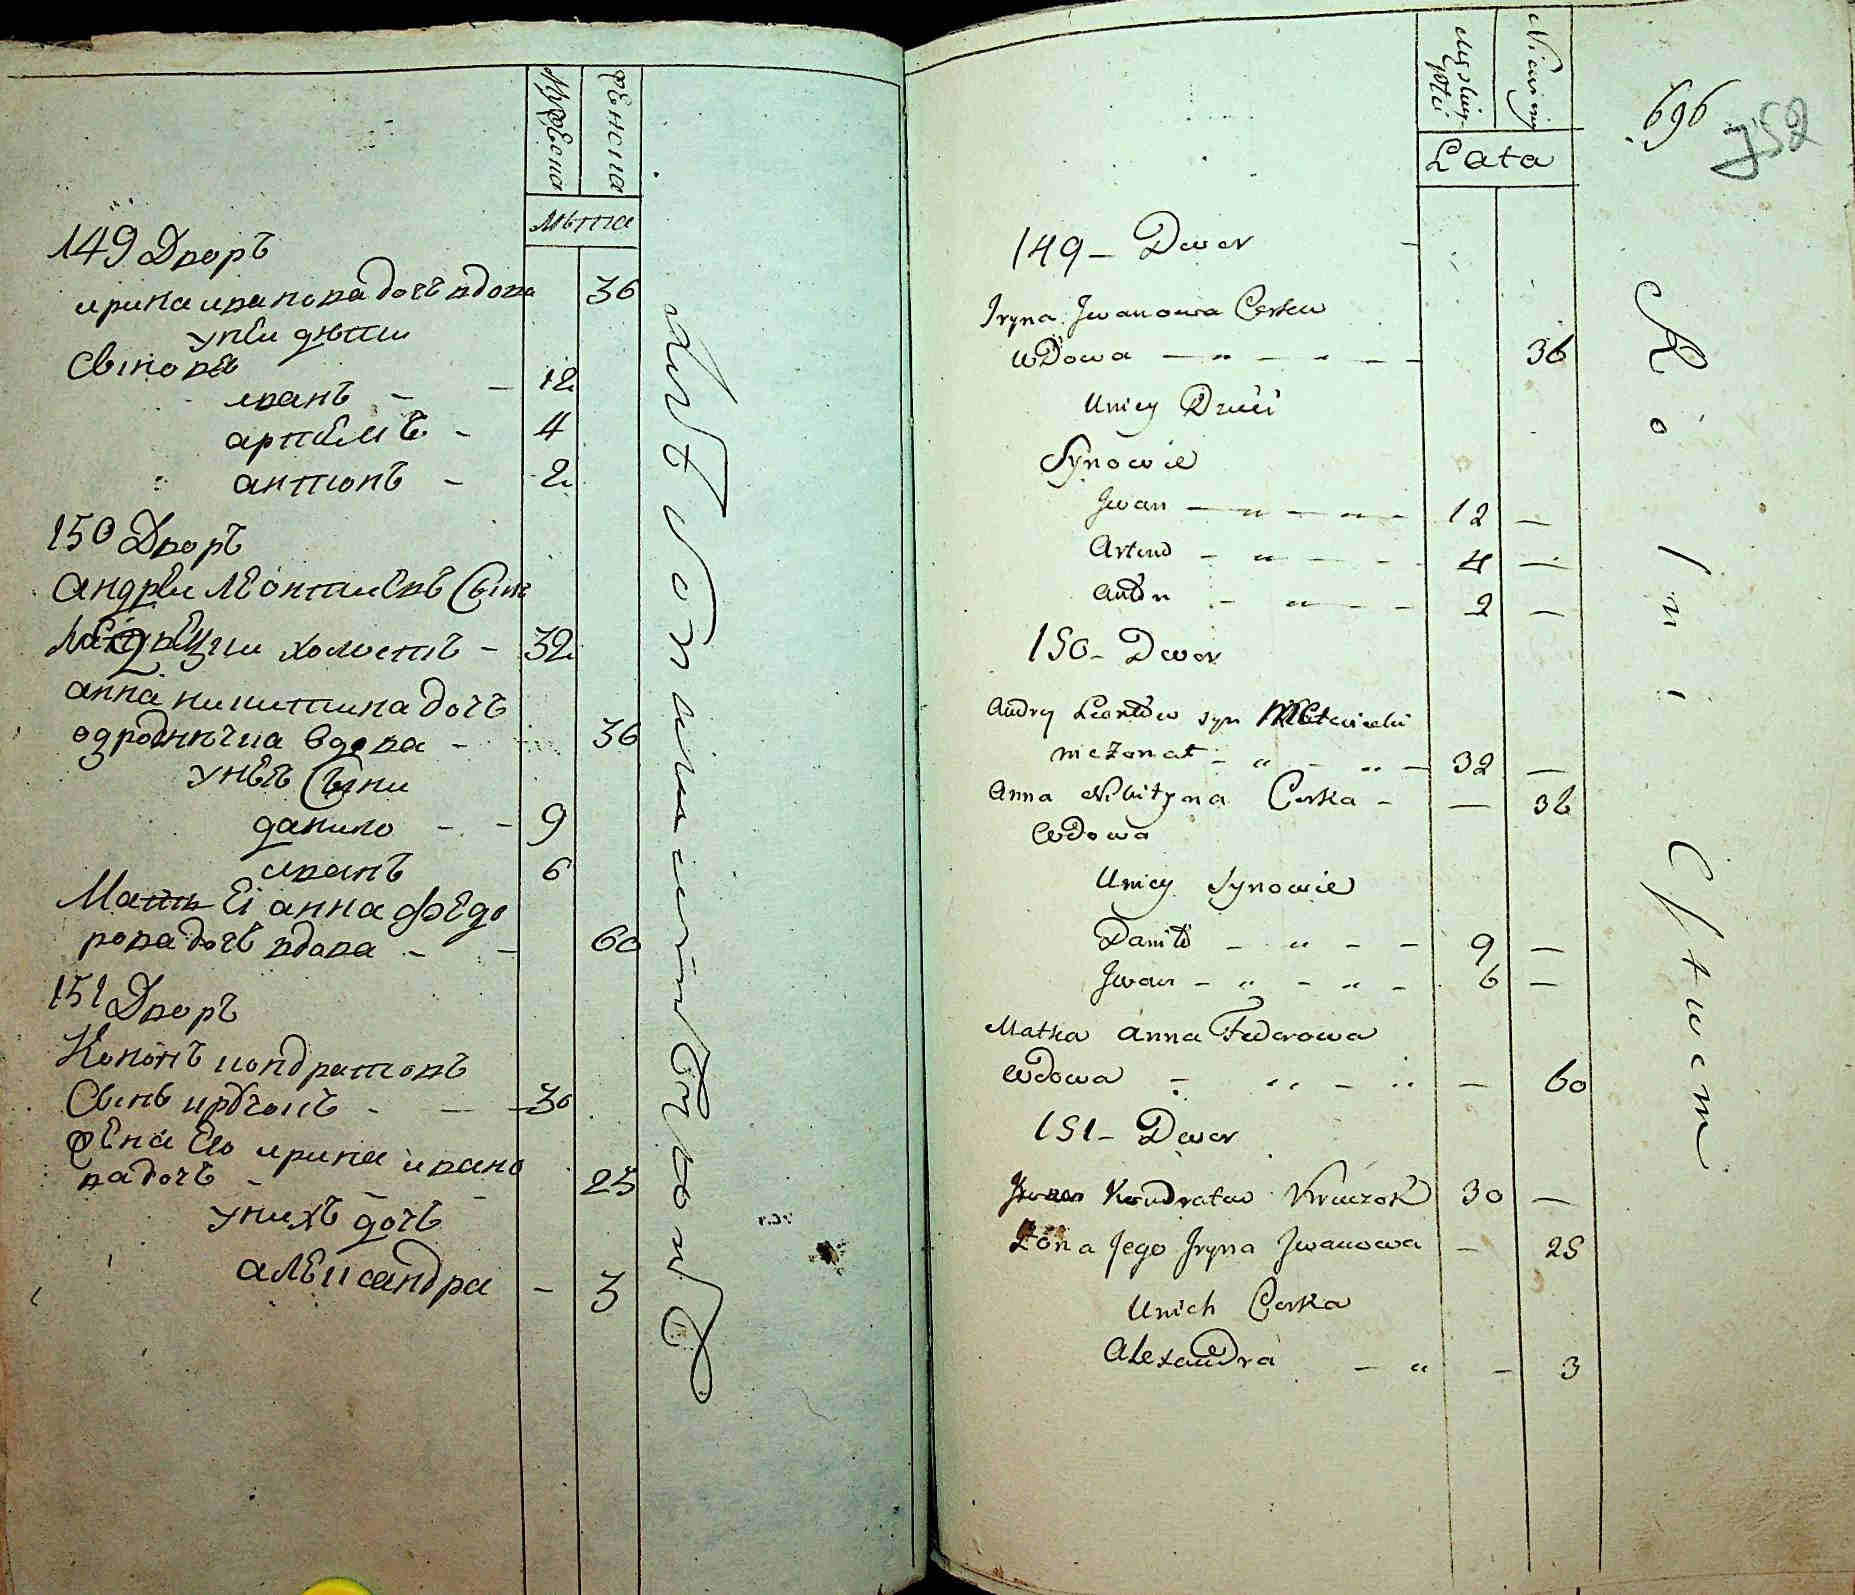 Мужеска
Женска
Лѣта
149 Дворъ
ирина иванова дочь вдова 36
у неи дѣти
Синовя
иванъ - - 12
артемъ - 4
антонъ - 2
150 Дворъ
андреи леонтиевъ Синъ
холостъ - 32
анна никитина дочь
вдова - 36
у неѣ Сыни
данило - - 9
иванъ 6
Мать Еі анна федо
рова дочь вдова - - 60
151 Дворъ
Кононъ кондратовъ
Синъ - - - 30
жена Его ирина ивано
ва дочь - - - 25
у нихъ дочь
александра - 3
696
752
Lata
149 - Dwor
Iryna Iwanowa Corka
wdowa - „ - „ - - 36
Uniey Dzieci
Synowie
Iwan - „ - „ - 12 -
Artem - „ - - - 4 -
Anton - „ - - 2 -
150 - Dwor
Andrey Leontow syn
nieżonat - „ - „ - 32 -
Anna Nikityna Corka - - 36
Wdowa
Uniey Synowie
Daniło - „ - - 9 -
Iwan - „ - „ - 6 -
Matka Anna Federowa
Wdowa - „ - „ - 60
151 - Dwor
Kondratow 30 -
Żona Jego Iryna Iwanowa - 25
Unich Corka
Alexandra - „ - 3